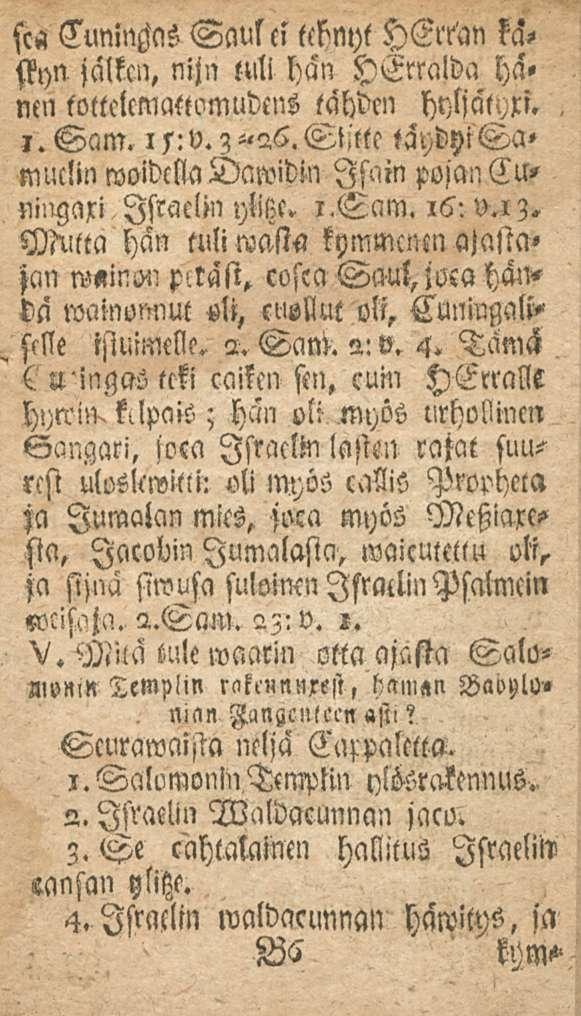 sca Cuningas Saul ei tehnyt HErran kä-
skyn jälken, nijn tuli hän HErralda hä-
nen tottelemattomudens tähden hyljätyxi.
1. Sam. 15: v. 3-26. Sijtte täydyi Sa-
muelin woidella Dawidin Isain pojan Cu-
ningaxi Israelin ylitze. 1. Sam. 16: v. 13.
Mutta hän tuli wasta kymmenen ajasta-
jan wainon peräst, cosca Saul, joca hän-
dä wainonnut oli, cuollut oli, Cuningali-
selle istuimelle. 2. Sam. 2: v. 4. Tämä
Cuningas teki caiken sen, cuin HErralle
hywin kelpais; hän oli myös urhollinen
Sangari, joca Israelin lasten rajat suu-
rest uloslewitti: oli myös callis Propheta
ja Jumalan mies, joca myös Meßiaxe-
sta, Jacobin Jumalasta, waicutettu oli,
ja sijnä siwusa suloinen Israelin Psalmein
weisaja. 2. Sam. 23: v. 1.
V. Mitä tule waarin otta ajasta Salo-
monin Templin rakennuxest, haman Babylo-
nian Fangeuteen asti?
Seurawaista neljä Cappaletta.
1. Salomonin Templin ylösrakennus.
2. Israelin Waldacunnan jaco.
3. Se cahtalainen hallitus Israelin
cansan ylitze.
4. Israelin waldacunnan häwitys, ja
B6 kym-